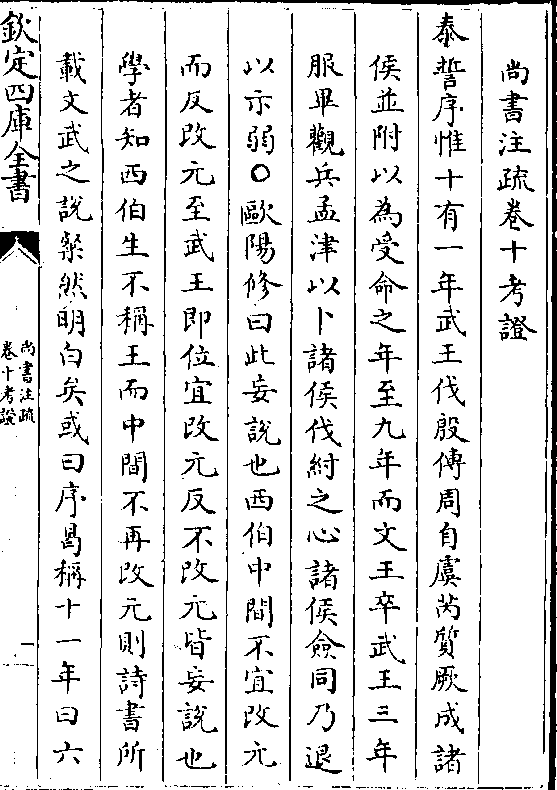 尚書注疏卷十考證
泰誓序惟十有一年武王伐殷傳周自虞芮質厥成諸
侯並附以為受命之年至九年而文王卒武王三年
服畢觀兵孟津以卜諸侯伐紂之心諸侯僉同乃退
以示弱○歐陽修曰此妄說也西伯中間不宜改元
而反改元至武王即位宜改元反不改元皆妄說也
學者知西伯生不稱王而中間不再改元則詩書所
載文武之說粲然明白矣或曰序曷稱十一年曰六
欽定四庫全書
尚書注疏
卷十考證
一